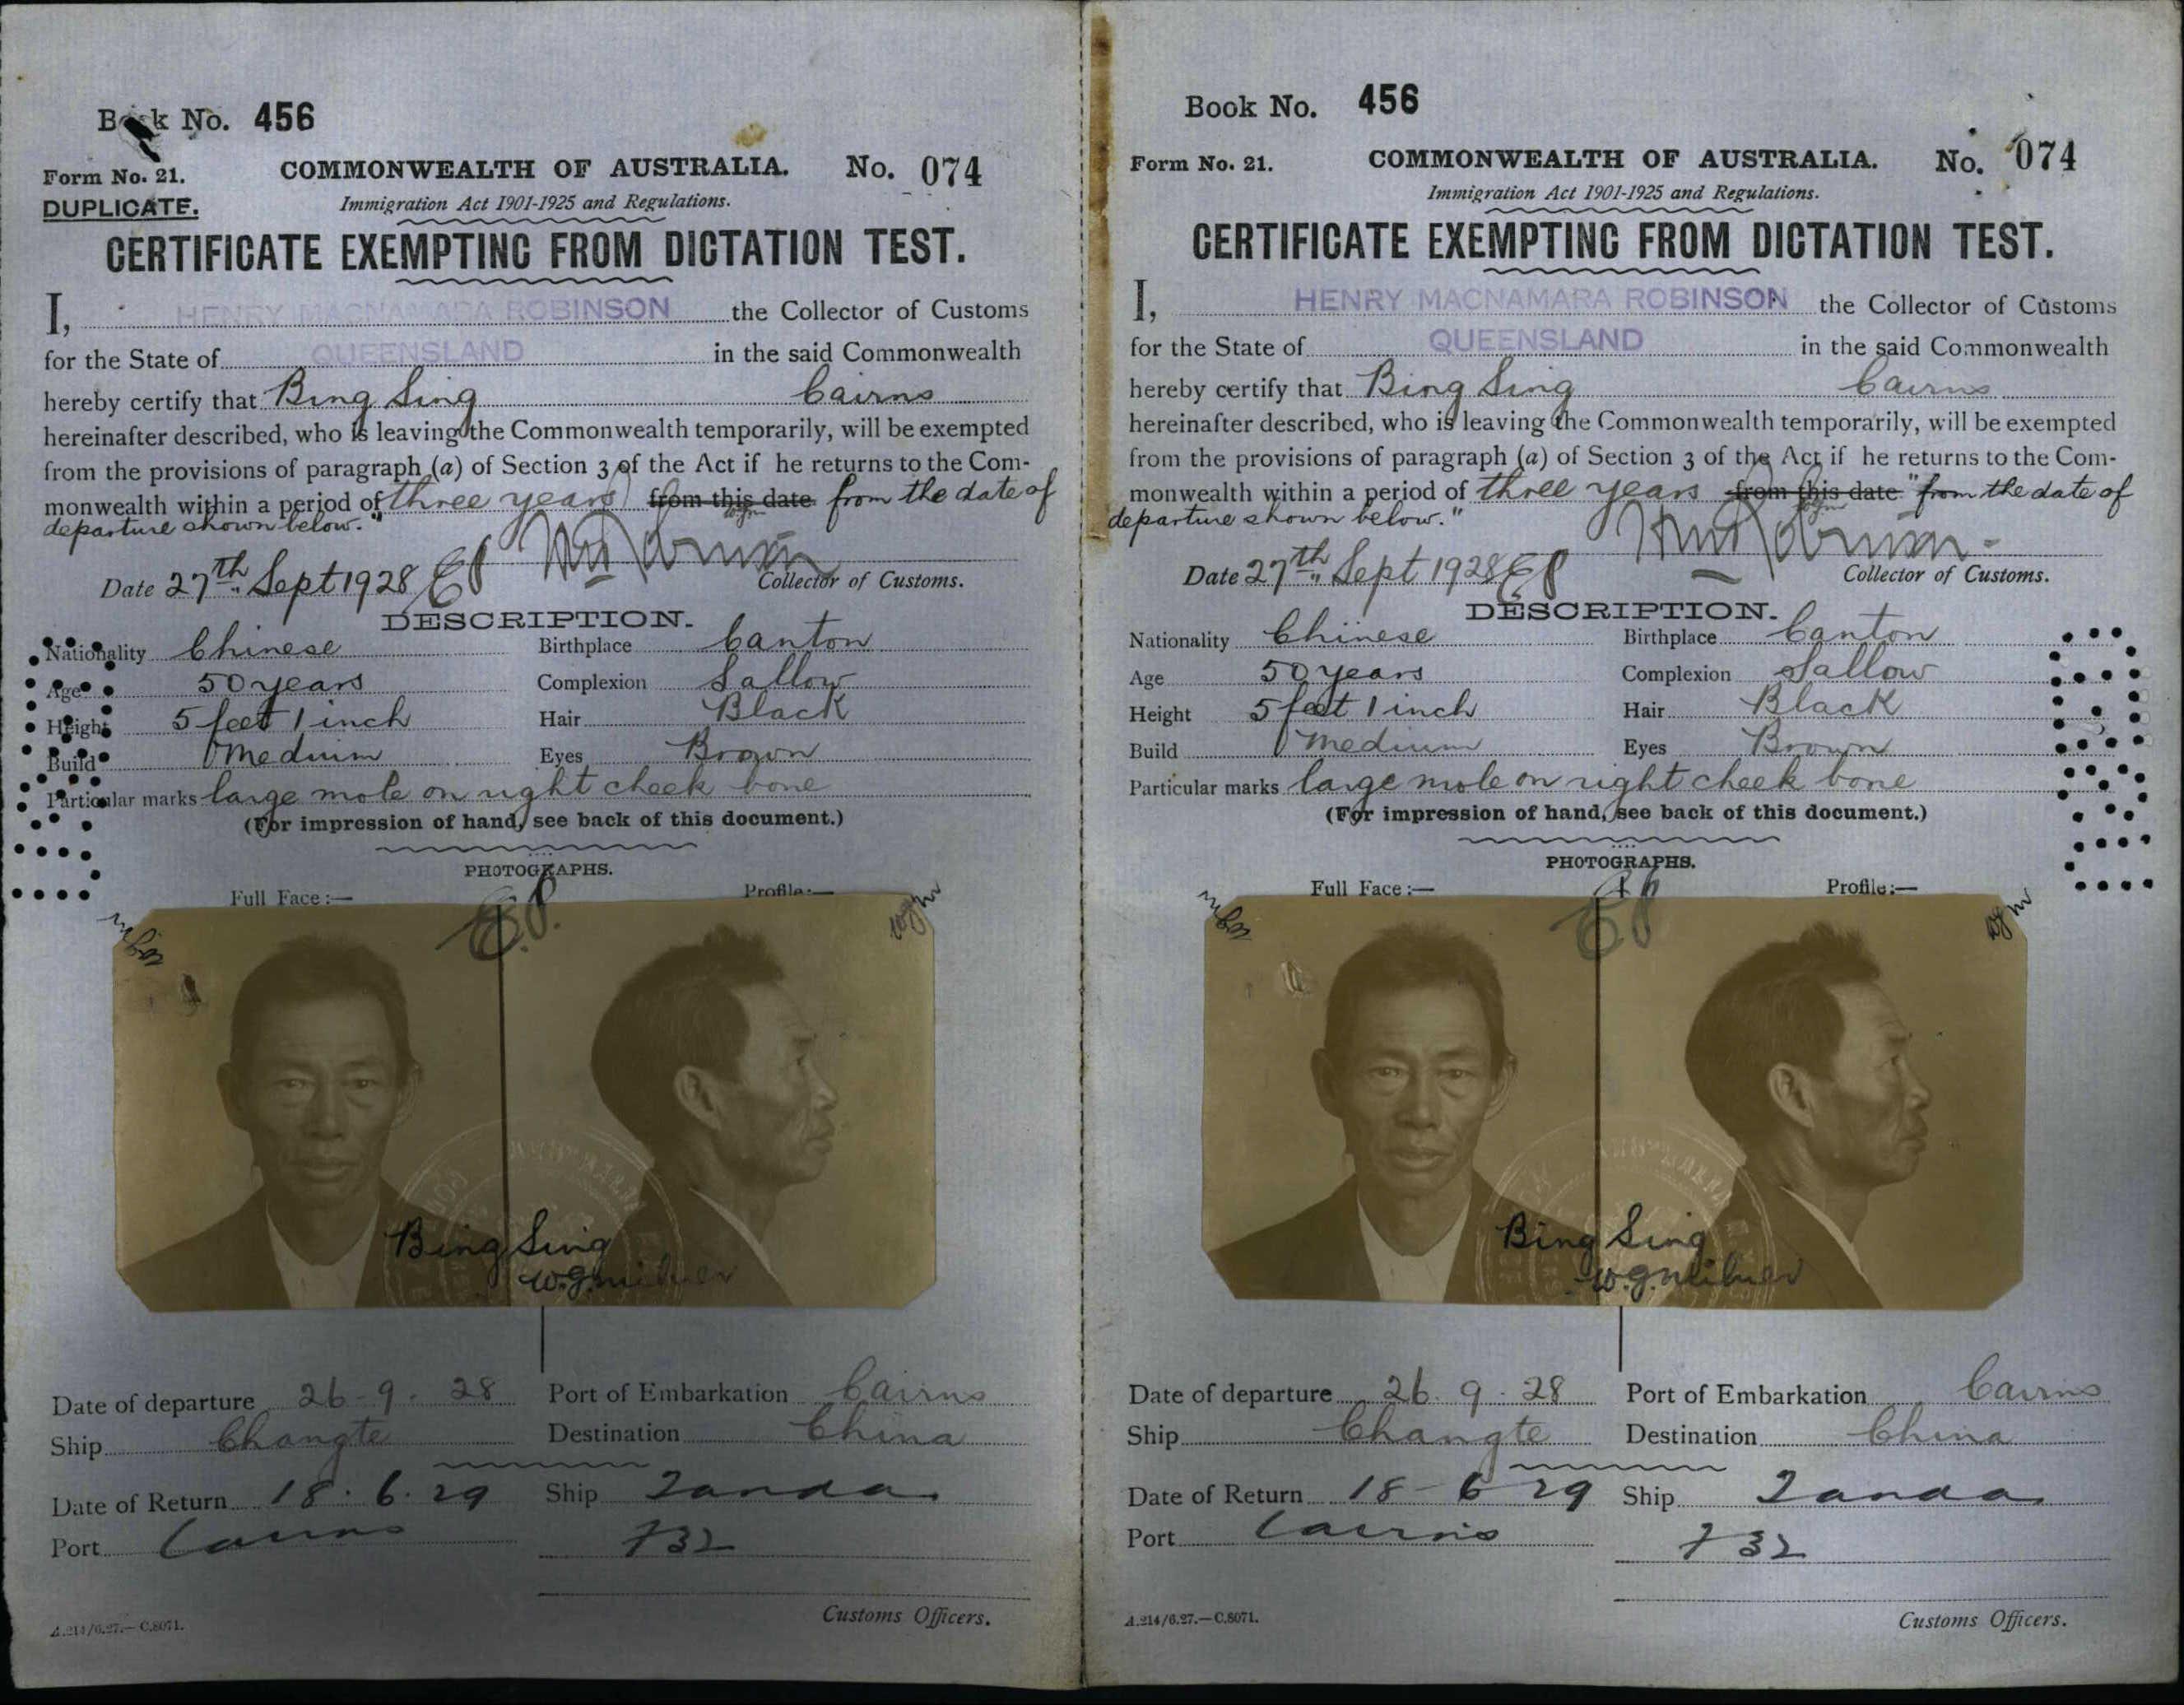 Book No. 456
Form No. 21.
COMMONWEALTH OF AUSTRALIA.
No. 074
DUPLICATE.
Immigration Act 1901-1925 and Regulations.
CERTIFICATE EXEMPTING FROM DICTATION TEST.
I, HENRY MACNAMARA ROBINSON the Collector of Customs
for the State of QUEENSLAND in the said Commonwealth
hereby certify that Bing Sing Cairns
hereinafter described, who is leaving the Commonwealth temporarily, will be exempted
from the provisions of paragraph (a) of Section 3 of the Act if he returns to the Com-
monwealth within a period of three years from this date from the date of
departure shown below."
Date 27th Sept 1928 EP
Collector of Customs.
DESCRIPTION.
Nationality Chinese Birthplace Canton
Age 50 years Complexion Sallow
Height 5 feet 1 inch Hair Black
Build Medium Eyes Brown
Particular marks large mole on right cheek bone
(For impression of hand, see back of this document.)
PHOTOGRAPHS.
Full Face :— Profile:—
E.P.
wgm
wgm
Bing Sing
W.G. Milner
Date of departure 26-9-28 Port of Embarkation Cairns
Ship Changte Destination China
Date of Return 18.6.29 Ship Tanda
Port Cairns 732
Customs Officers.
A.214/6.27.—C.8071.
Book No. 456
Form No. 21.
COMMONWEALTH OF AUSTRALIA.
No. 074
Immigration Act 1901-1925 and Regulations.
CERTIFICATE EXEMPTING FROM DICTATION TEST.
I, HENRY MACNAMARA ROBINSON the Collector of Customs
for the State of QUEENSLAND in the said Commonwealth
hereby certify that Bing Sing Cairns
hereinafter described, who is leaving the Commonwealth temporarily, will be exempted
from the provisions of paragraph (a) of Section 3 of the Act if he returns to the Com-
monwealth within a period of three years from this date "from the date of
departure shown below."
Date 27th Sept 1928 EP
Collector of Customs.
DESCRIPTION.
Nationality Chinese Birthplace Canton
Age 50 years Complexion Sallow
Height 5 feet 1 inch Hair Black
Build Medium Eyes Brown
Particular marks large mole on right cheek bone
(For impression of hand, see back of this document.)
PHOTOGRAPHS.
Full Face :— Profile :—
EP
wgm
wgm
Bing Sing
W.G. Milner
Date of departure 26.9.28 Port of Embarkation Cairns
Ship Changte Destination China
Date of Return 18-6-29 Ship Tanda
Port Cairns 732
Customs Officers.
A.214/6.27.—C.8071.